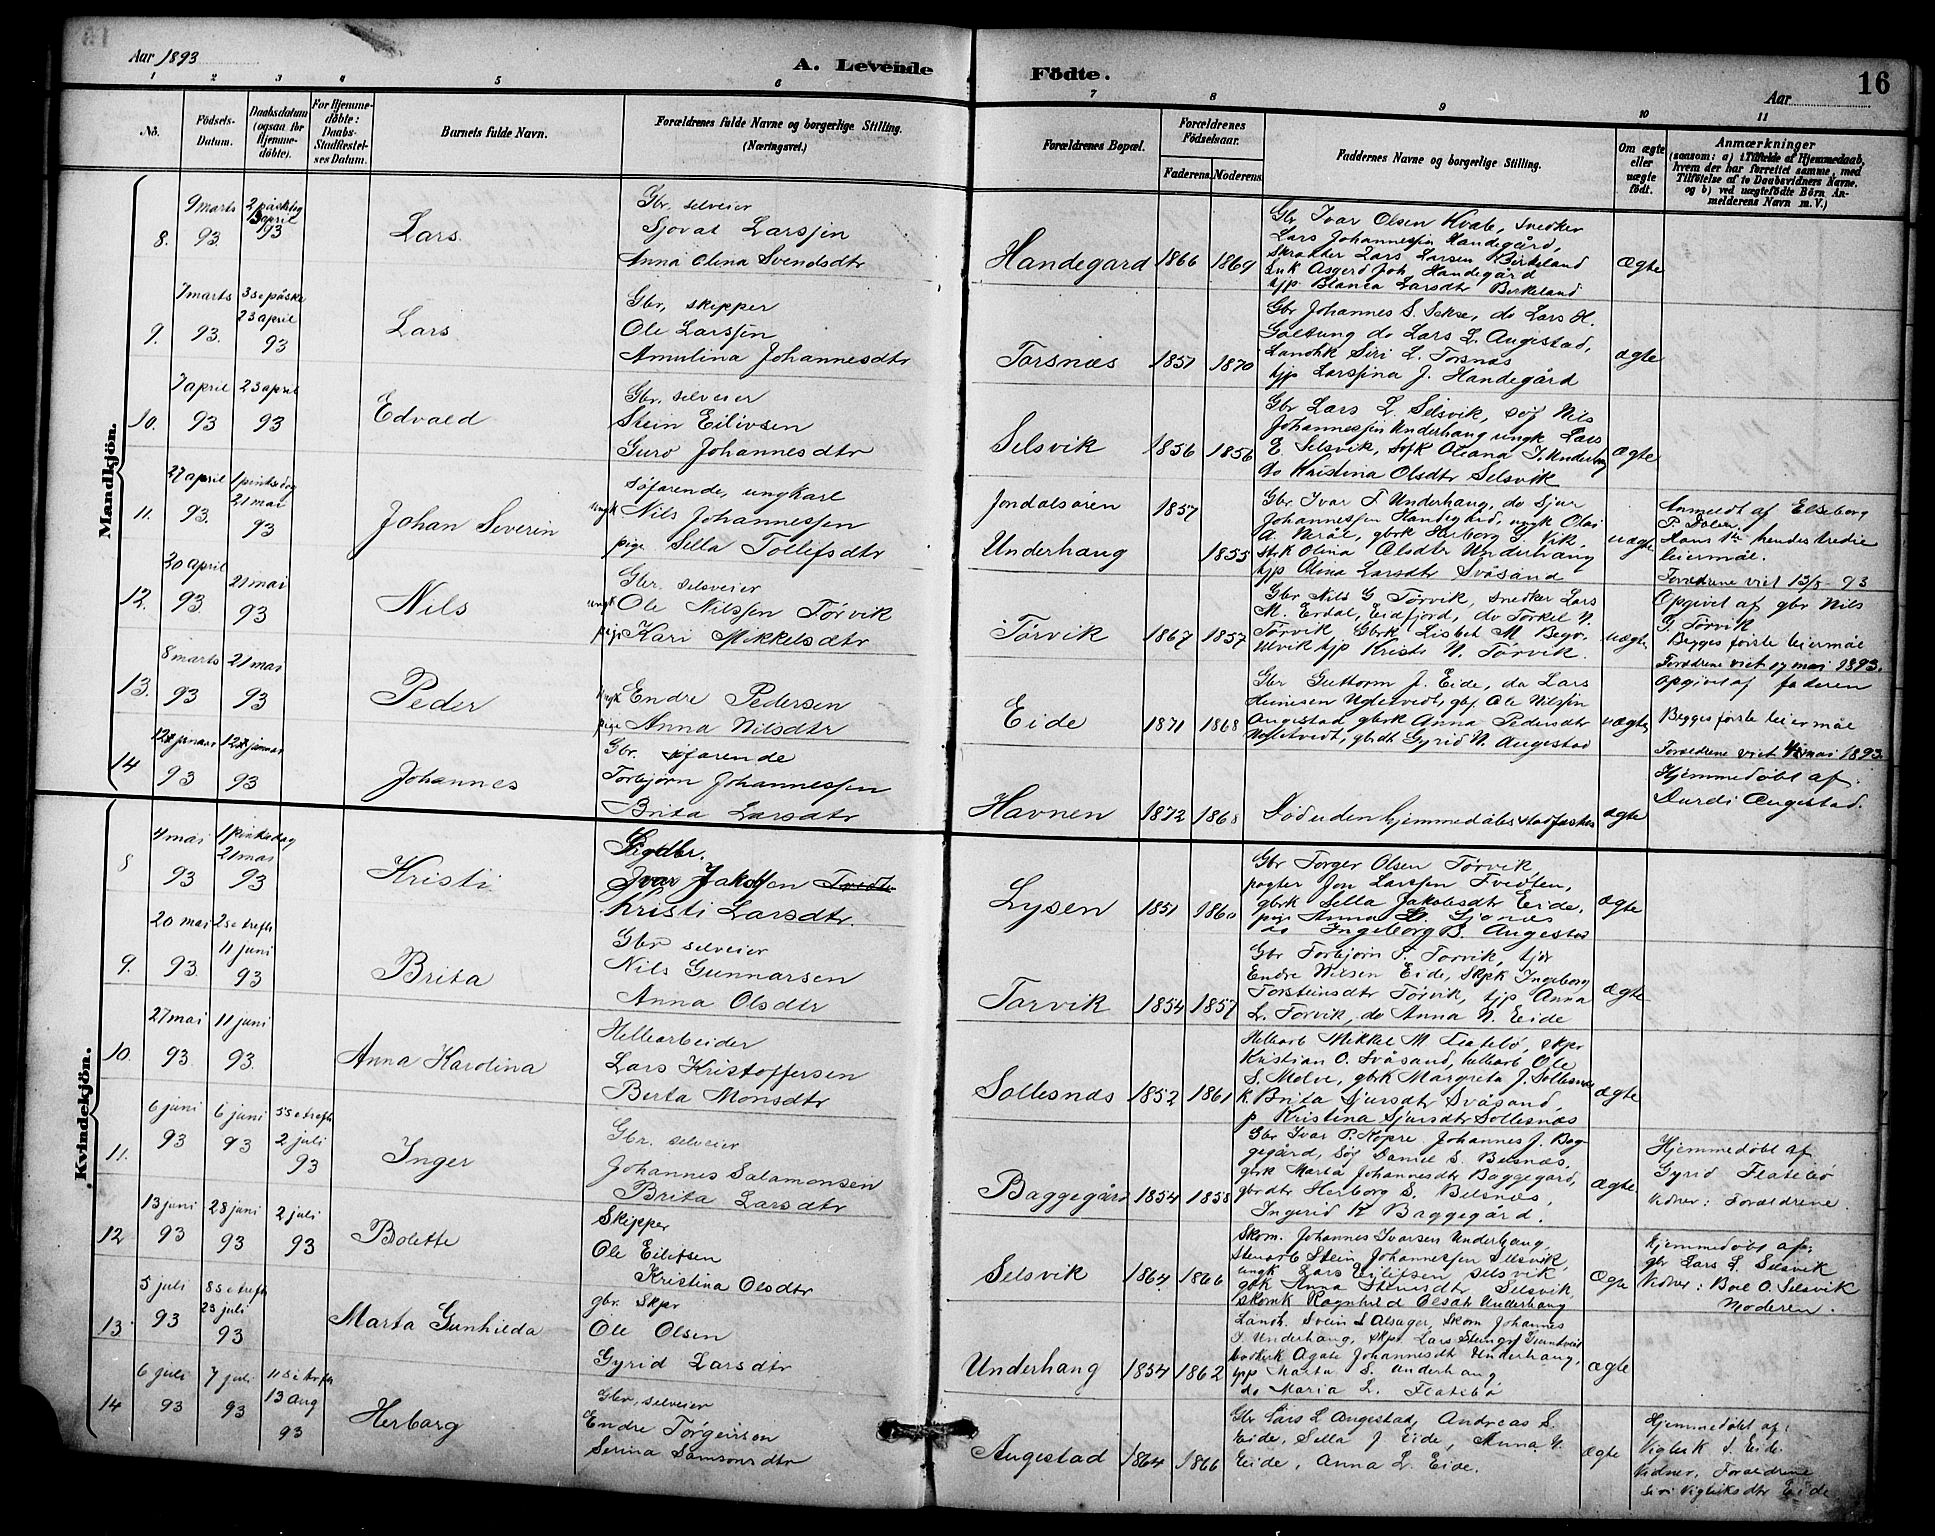 Aar 1893
A. Levende Fødte.
16
Aar
1 2 3 4 5 6 7 8 9 10 11
No.
Fødsels-Datum.
Daabsdatum (ogsaa for Hjemmedøbte).
For Hjemmedøbte: Daabs-Stadfæstelses Datum.
Barnets fulde Navn.
Forældrenes fulde Navne og borgerlige Stilling.
(Næringsvei.)
Forældrenes Bopæl.
Forældrenes Fødselsaar.
Faderens. Moderens.
Faddernes Navne og borgerlige Stilling.
Om ægte eller uægte født.
Anmærkninger
(saasom: a) i Tilfælde af Hjemmedaab, hvem der har forrettet samme, med Tilføielse af to Daabsvidners Navne, og b) ved uægtefødte Børn Anmelderens Navn m. V.)
Mandkjøn.
8. 9 marts 93. 2 påskedag 3 april 93
Lars
Gbr. selveier
Sjovat Larssen
Anna Olina Svendsdtr
Handegard 1866 1869
Gbr Ivar Olsen Kvale, snedker
Lars Johannessen Handegård,
skrædder Lars Larsen Birkeland
Enk Asgerd Joh. Handegård
tjp Blanca Larsdtr Birkeland
ægte
9. 7 marts 93. 3 s e påske 23 april 93
Lars
Gbr, skipper
Ole Larssen
Amulina Johannesdtr
Torsnæs 1857 1870
Gbr Johannes S. Sekse, do Lars H.
Galtung do Lars L. Augestad,
Landhk Siri L. Torsnæs
tjp Larssina J. Handegård
ægte
10. 7 april 93 23 april 93
Edvald
Gbr. selveier
Stein Eilivsen
Guro Johannesdtr
Selsvik 1856 1856
Gbr Lars L. Selsvik, søf Nils
Johannessen Underhaug ungk Lars
E. Selsvik, søfk Oliana J. Underhaug
do Kristina Olsdtr Selsvik
ægte
11. 27 april 93. 1 pintsedag 21 mai 93
Johan Severin
Søfarende, ungkarl
ungk Nils Johannessen
pige Sella Tollifsdtr
Jondalsøren 1857
Underhaug 1855
Gbr. Ivar T Underhaug, do Sjur
Johannessen Handegård, ungk Olav
A. Brål, gbrk Herborg S. Vik,
strk Olina Olsdtr Underhaug
tjp Olina Larsdtr Svåsand
uægte
Anmeldt af Elseborg
P. Solem.
Hans 1ste hendes tredie
leiermål.
Forældrene viet 13/5 93
12. 20 april 93. 21 mai 93
Nils
Gbr. selveier
ungk Ole Nilssen Tørvik
pige Kari Mikkelsdtr
Tørvik 1867 1857
Gbr Nils G Tørvik, snedker Lars
M. Erdal, Eidfjord, do Torkel N.
Tørvik Gbrk Lisbet M Bego.
Ulvik tjp Kristi N. Tørvik.
uægte
Opgivet af gbr Nils
G. Tørvik
Begges første leiermål
Forældrene viet 17 mai 1893.
13. 8 marts 93 21 mai 93
Peder
ungk Endre Pedersen
pige Anna Nilsdtr
Eide 1871 1868
Gbr Guttorm J. Eide, do Lars
Heinesen Ugletvedt, gbf Ole Nilssen
Augestad gbrk Anna Pedersdtr
Ugletvedt, gbdt Gyrid N. Augestad
uægte
opgivet af faderen
Begges første leiermål
Forældrene viet mai 1893.
14 12 januar 93 12 januar 93
Johannes
Gbr. søfarende
Torbjørn Johannessen
Brita Larsdtr
Havnen 1872 1868
Død uden hjemmedåbs stadfæstes
ægte
Hjemmedøbt af
Durdi Augestad.
Kvindekjøn.
8 4 mai 93 1 pintsedag 21 mai 93
Kristi
Gbr.
Ivar Jakobsen
Kristi Larsdtr.
Lysen 1851 1860
Gbr Torger Olsen Tørvik,
pagter Jon Larssen Tvedten,
gbrk Sella Jakobsdtr Eide,
pige Anna L. Sjonæs
do Ingeborg B. Augestad
ægte
9. 20 mai 93. 2 s e trefh 11 juni 93
Brita
Gbr selveier
Nils Gunnarsen
Anna Olsdtr
Tørvik 1854 1857
Gbr Torbjørn T. Tørvik, tjdr
Endre Nilsen Eide, Skpk Ingeborg
Torsteinsdtr Tørvik, tjp Anna
L. Tørvik, do Anna N. Eide
ægte
10. 27 mai 93 11 juni 93.
Anna Karolina
Hellearbeider
Lars Kristoffersen
Berta Monsdtr
Sollesnæs 1852 1861
Hellearb Mikkel M Flatebø, skpr
Kristian O. Svåsand, hellearb Ole
S. Melve, gbrk Margreta J. Sollesnæs
k. Brita Sjursdtr Svåsand,
p Kristina Sjursdtr Sollesnæs
ægte
11. 6 juni 93 6 juni 93 5 s e trefh 2 juli 93
Inger
Gbr. selveier
Johannes Salamonsen
Brita Larsdtr
Baggegård 1854 1858
Gbr Ivar P. Kopre Johannes J. Bag-
gegård, Søf Daniel S. Belsnæs,
gbrk Marta Johannesdtr Baggegård,
gbrdtr Herborg S. Belsnæs,
Ingerid K Baggegård.
ægte
Hjemmedøbt af
Gyrid Flatebø
Vidner: Forældrene.
12 13 juni 93 28 juni 93 2 juli 93
Bolette
Skipper
Ole Eilefsen
Kristina Olsdtr
Selsvik 1864 1866
Skom. Johannes Ivarsen Underhaug,
Stenarb Stein Johannessen Selsvik,
ungk Lars Eilifsen Selsvik
gbk Anna Stensdtr Selsvik,
skomk Ragnhild Olsdtr Underhaug
Ægte
Hjemmedøbt af:
gbr Lars L. Selsvik
Vidner: Boel O. Selsvik
Moderen.
13. 5 juli 93 8 s e trefh 23 juli 93
Marta Gunhilda
gbr. Skpr
Ole Olsen
Gyrid Larsdtr
Underhaug 1854 1862
Landh. Svein S Alsager, Skom Johannes
I. Underhaug, skpr Lars Steingr
Agate Johannesdt Underhaug,
tjp Marta S. Underhaug
do Maria L. Flatebø
ægte
14 6 juli 93 7 juli 93 11 s e trefh 13 aug 93
Herborg
Gbr, selveier
Endre Tørgeirsen
Serina Samsonsdtr
Augestad 1864 1866
Gbr Lars L Augestad, Andreas S.
Eide, Sella J Eide, Anna N.
Eide, Anna L. Eide.
ægte
Hjemmedøbt af:
Viglek S. Eide.
Vidner. Forældrene
Sivi Vigleiksdtr Eide